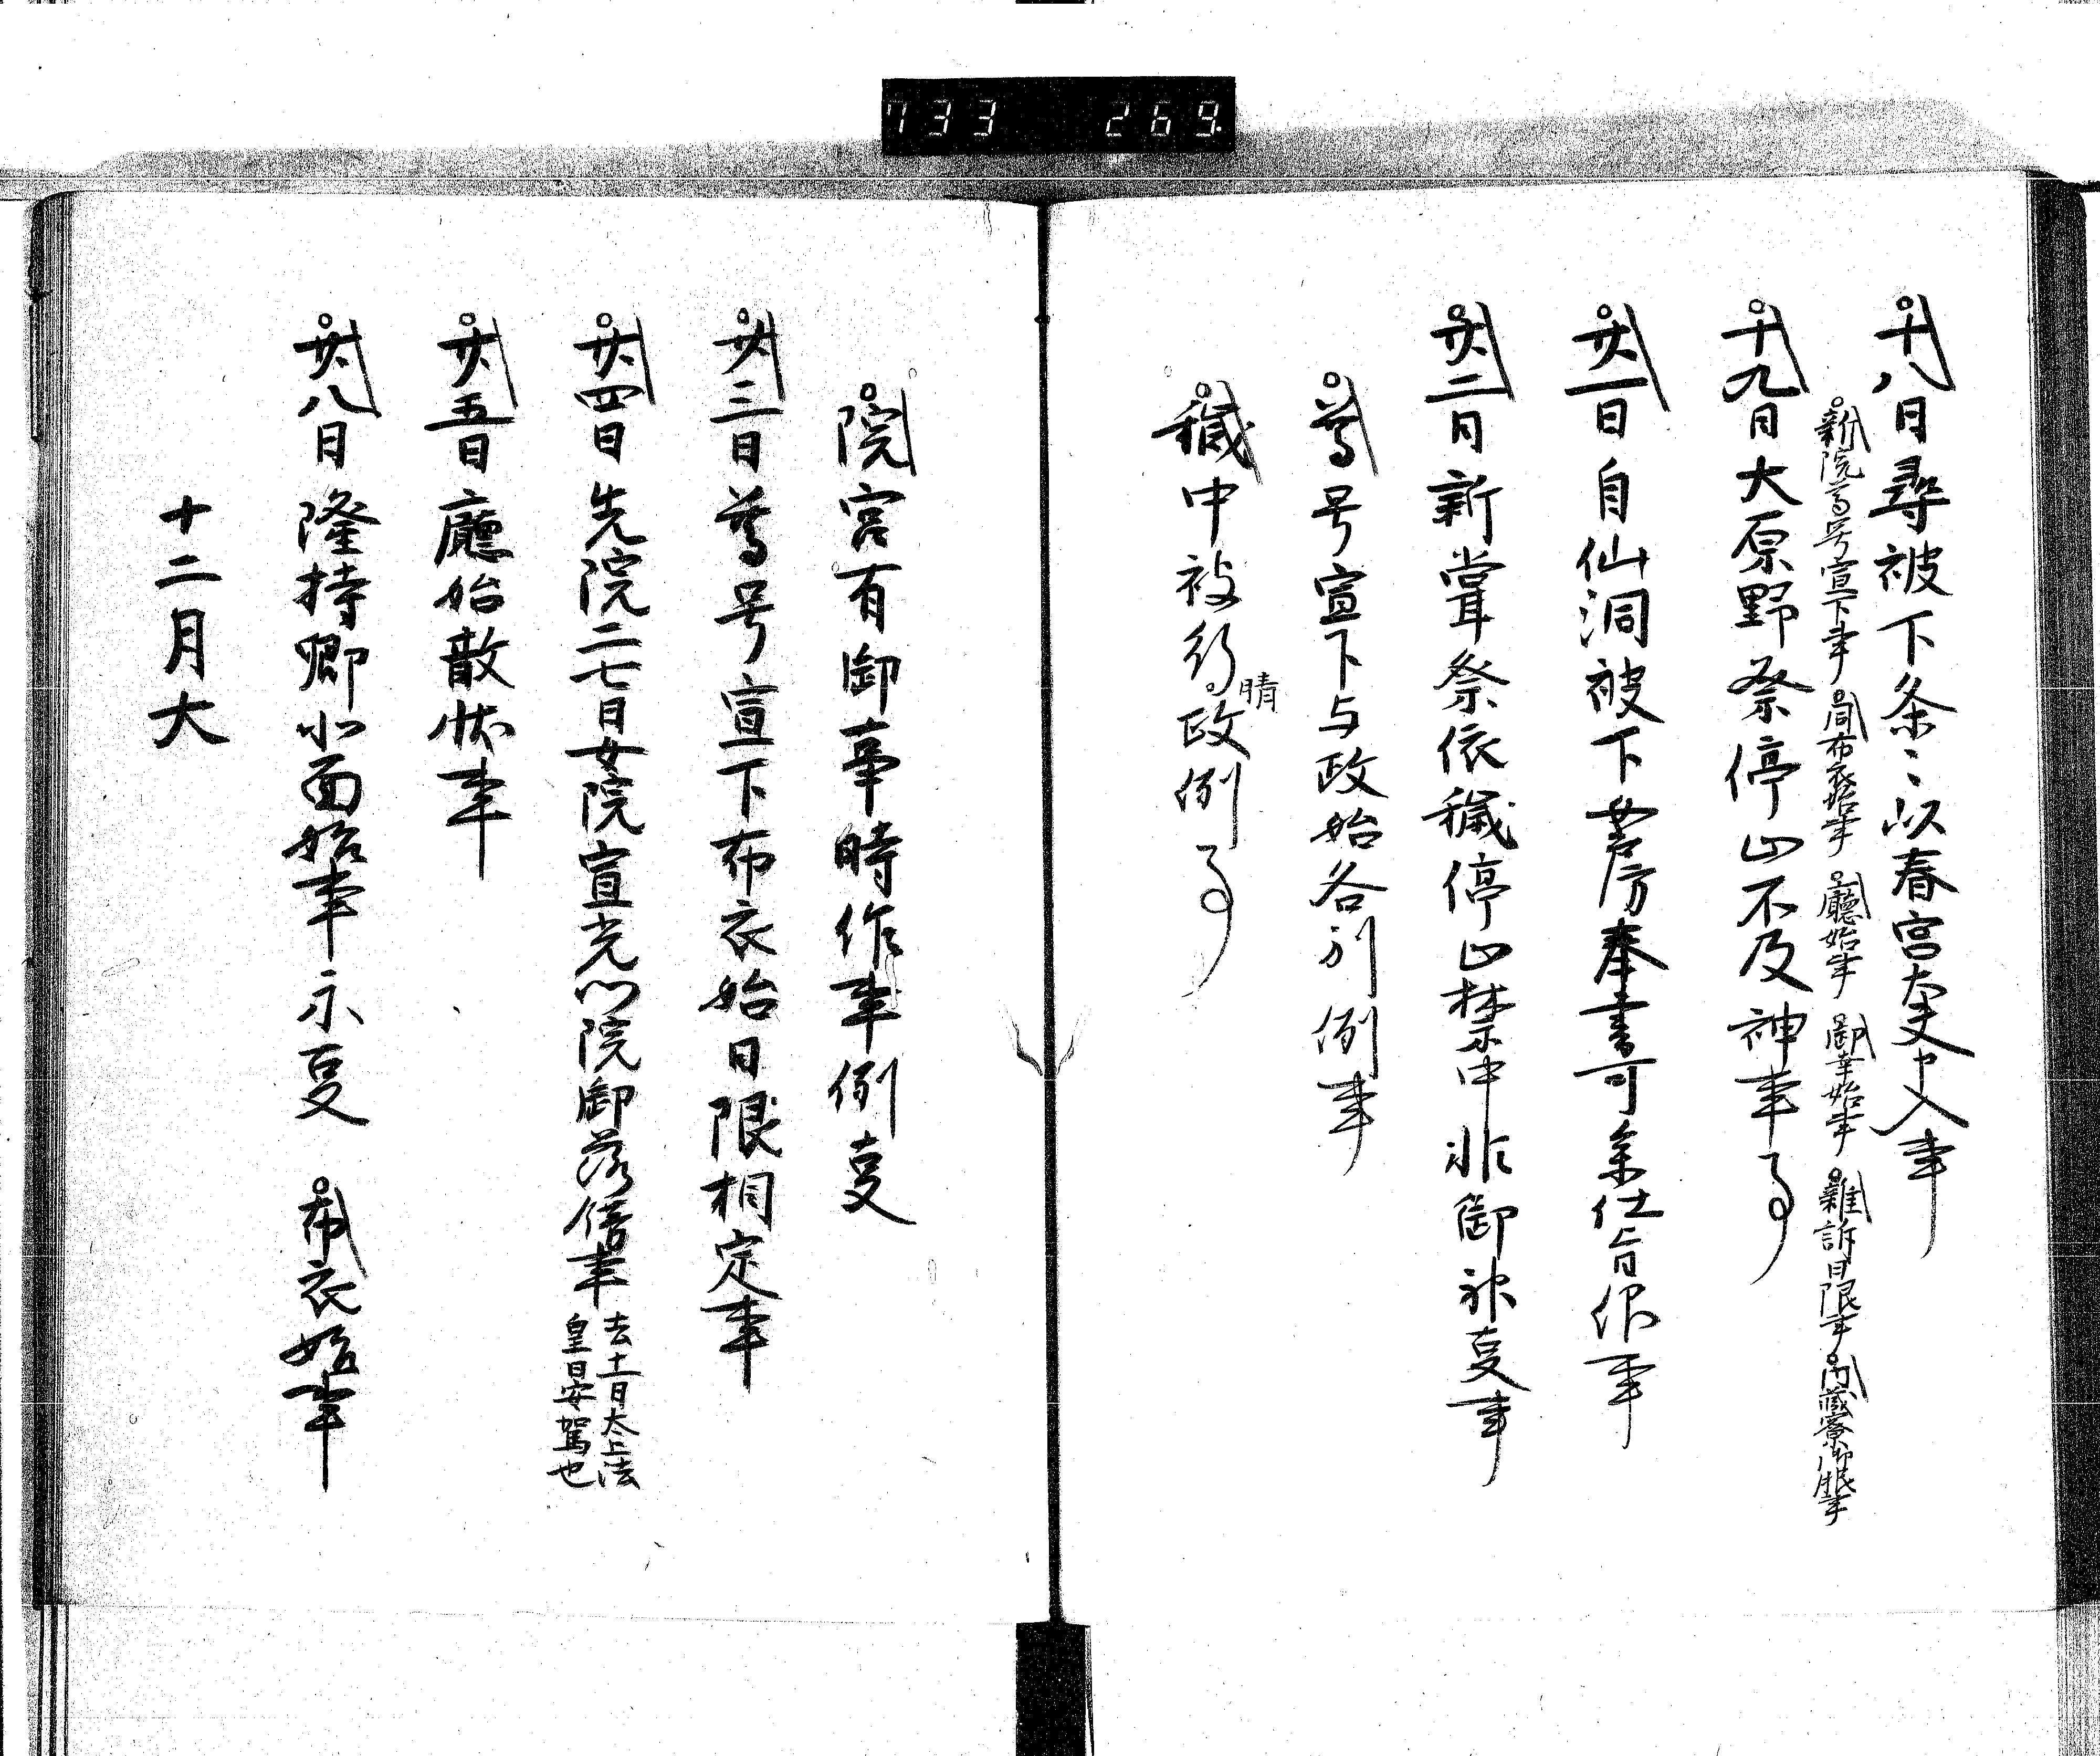 733 269
十八日尋被下条々以春宮大夫申入事
新院尊号宣下事 同布衣始事 廳始事 御幸始事 雑訴日限事 内蔵寮御服事
十九日大原野祭停止不及神事事
廿一日自仙洞被下女房奉書可参仕旨仰事
廿二日新嘗祭依穢停止禁中非御神事事
尊号宣下与政始各別例事
穢中被行政例事
晴
院宮有御事時作事例事
廿三日尊号宣下布衣始日限相定事
廿四日先院二七日女院宣光門院御落餝事 去十一日太上法
皇晏駕也
廿五日廳始散状事
廿八日隆持卿北面始事示事 布衣始事
十二月大